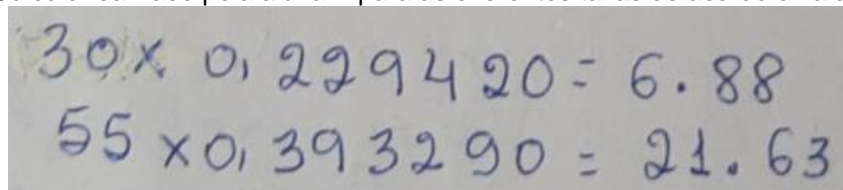 30 x 0,229420 = 6.88
55 x 0,393290 = 21.63